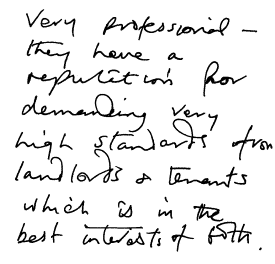 Very professional -
they have a
reputation for
demanding very
high standards from
landlords & tenants
which is in the
best interests of both.